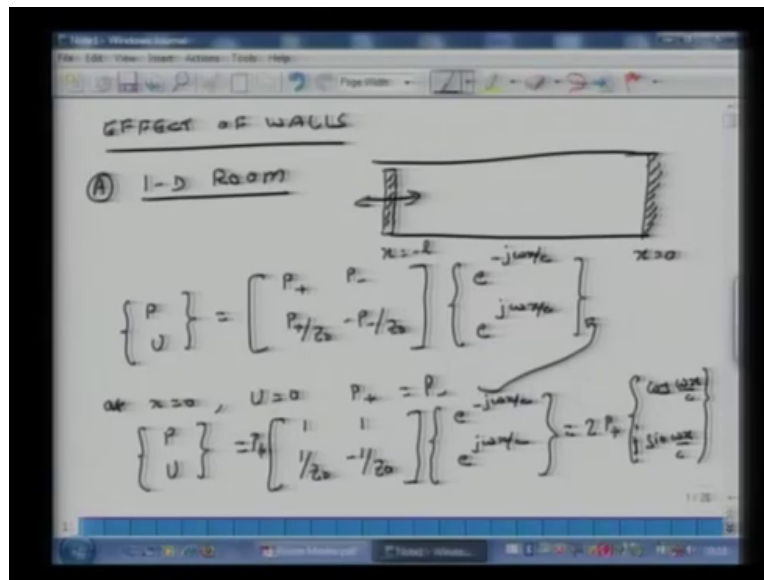 Note1 - Windows Journal
File Edit View Insert Actions Tools Help
Page Width
EFFECT OF WALLS
Ⓐ 1-D ROOM
x=-l x=0
{P U} = [P₊ P₋ P₊/Z₀ -P₋/Z₀] {e^{-jωx/c} e^{jωx/c}}
at x=0, U=0 P₊ = P₋
{P U} = P₊ [1 1 1/Z₀ -1/Z₀] {e^{-jωx/c} e^{jωx/c}} = 2 P₊ {cos ωx/c j sin ωx/c}